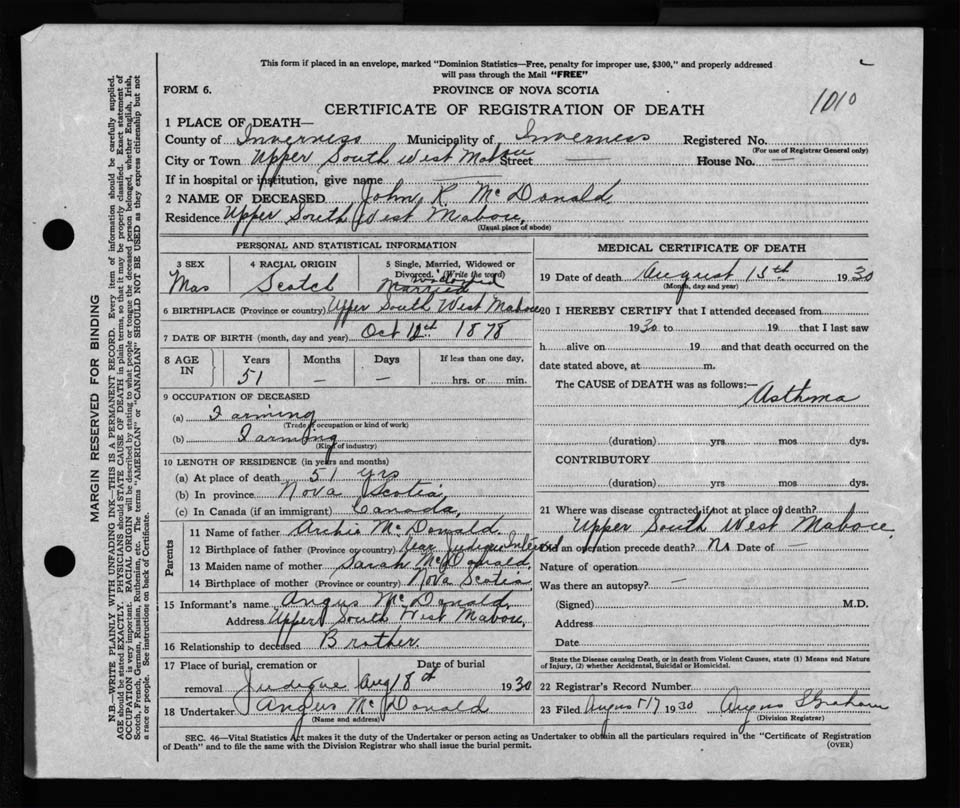 This form if placed in an envelope, marked "Dominion Statistics—Free, penalty for improper use, $300," and properly addressed
will pass through the Mail "FREE"
FORM 6.
PROVINCE OF NOVA SCOTIA
1010
CERTIFICATE OF REGISTRATION OF DEATH
1 PLACE OF DEATH—
County of Inverness Municipality of Inverness Registered No.
(For use of Registrar General only)
City or Town Upper South West Mabou Street — House No. —
If in hospital or institution, give name —
2 NAME OF DECEASED John R McDonald
Residence Upper South West Mabou,
(Usual place of abode)
PERSONAL AND STATISTICAL INFORMATION
3 SEX 4 RACIAL ORIGIN 5 Single, Married, Widowed or
Divorced. (Write the word)
Mas Scotch Married
6 BIRTHPLACE (Province or country) Upper South West Mabou
7 DATE OF BIRTH (month, day and year) Oct 12th 1878
8 AGE IN Years Months Days If less than one day,
51 — — hrs. or min.
9 OCCUPATION OF DECEASED
(a) Farming
(Trade, occupation or kind of work)
(b) Farming
(Kind of industry)
10 LENGTH OF RESIDENCE (in years and months)
(a) At place of death 51 yrs
(b) In province Nova Scotia,
(c) In Canada (if an immigrant) Canada,
Parents
11 Name of father Archie McDonald.
12 Birthplace of father (Province or country) Rear Judique Interval
13 Maiden name of mother Sarah McDonald,
14 Birthplace of mother (Province or country) Nova Scotia
15 Informant's name Angus McDonald,
Address Upper South West Mabou,
16 Relationship to deceased Brother.
17 Place of burial, cremation or Date of burial
removal Judique Aug 18th 1930
18 Undertaker Angus McDonald
(Name and address)
MEDICAL CERTIFICATE OF DEATH
19 Date of death August 15th 1930
(Month, day and year)
20 I HEREBY CERTIFY that I attended deceased from
1930 to 19 that I last saw
h alive on 19 and that death occurred on the
date stated above, at m.
The CAUSE of DEATH was as follows:—
Asthma
(duration) yrs mos dys.
CONTRIBUTORY
(duration) yrs. mos dys.
21 Where was disease contracted if not at place of death?
Upper South West Mabou,
Did an operation precede death? No Date of —
Nature of operation
Was there an autopsy? —
(Signed) M.D.
Address
Date
State the Disease causing Death, or in death from Violent Causes, state (1) Means and Nature
of Injury, (2) whether Accidental, Suicidal or Homicidal.
22 Registrar's Record Number
23 Filed August 17 1930 Angus Graham
(Division Registrar)
SEC. 46—Vital Statistics Act makes it the duty of the Undertaker or person acting as Undertaker to obtain all the particulars required in the "Certificate of Registration
of Death" and to file the same with the Division Registrar who shall issue the burial permit.
(OVER)
MARGIN RESERVED FOR BINDING
N.B.—WRITE PLAINLY WITH UNFADING INK—THIS IS A PERMANENT RECORD. Every item of information should be carefully supplied.
AGE should be stated EXACTLY. PHYSICIANS should STATE CAUSE OF DEATH in plain terms, so that it may be properly classified. Exact statement of
OCCUPATION is very important. RACIAL ORIGIN will be described by stating to what people or tongue the deceased person belonged, whether English, Irish,
Scotch, French, German, Russian, Ruthenian, etc. The terms "AMERICAN" or "CANADIAN" SHOULD NOT BE USED as they express citizenship but not
a race or people. See instructions on back of Certificate.